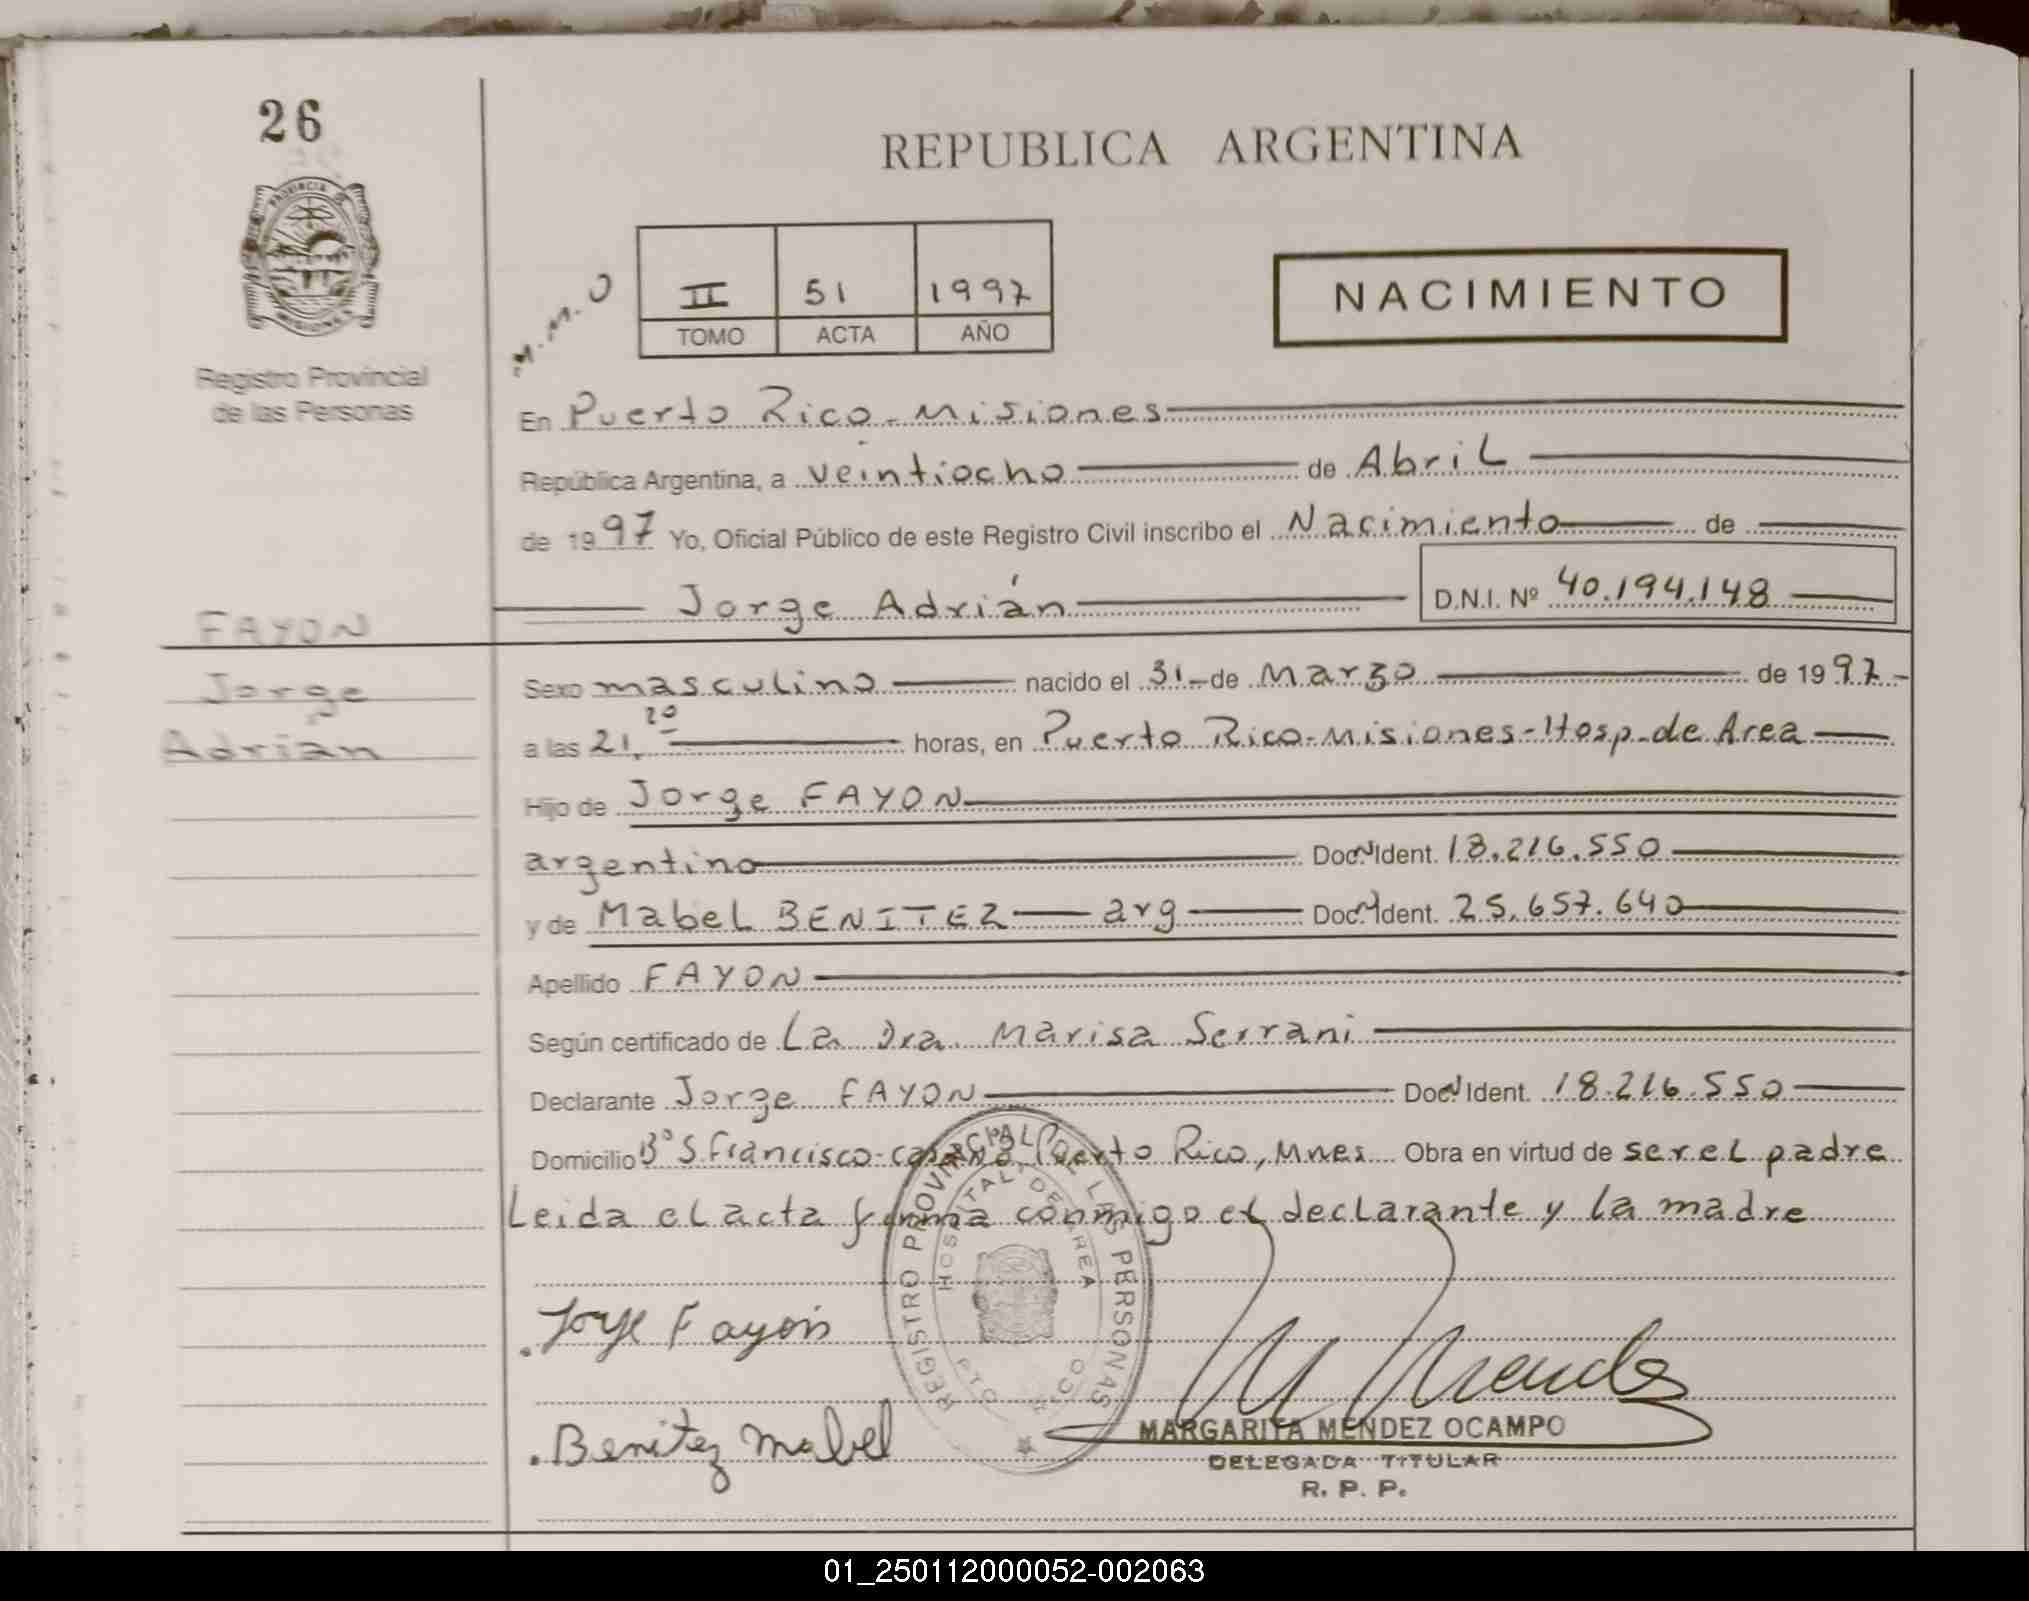 26
REPUBLICA ARGENTINA
PROVINCIA DE MISIONES
Registro Provincial
de las Personas
M.M.O
II 51 1997
TOMO ACTA AÑO
NACIMIENTO
En Puerto Rico - Misiones
República Argentina, a veintiocho de Abril
de 1997 Yo, Oficial Público de este Registro Civil inscribo el Nacimiento de
Jorge Adrián D.N.I. Nº 40.194.148
FAYON
Jorge
Adrián
Sexo masculino nacido el 31 de Marzo de 1997
a las 21,20 horas, en Puerto Rico - Misiones - Hosp. de Area
Hijo de Jorge FAYON
argentino Doc. Ident. 18.216.550
y de Mabel BENITEZ arg Doc. Ident. 25.657.640
Apellido FAYON
Según certificado de La Dra. Marisa Serrani
Declarante Jorge FAYON Doc. Ident. 18.216.550
Domicilio Bº S. Francisco - Puerto Rico, Mnes Obra en virtud de ser el padre
Leida el acta firma conmigo el declarante y la madre
REGISTRO PROVINCIAL DE LAS PERSONAS
HOSPITAL DE AREA
PTO RICO
Jorge Fayon
M Mendez
Benitez Mabel
MARGARITA MENDEZ OCAMPO
DELEGADA TITULAR
R. P. P.
01_250112000052-002063